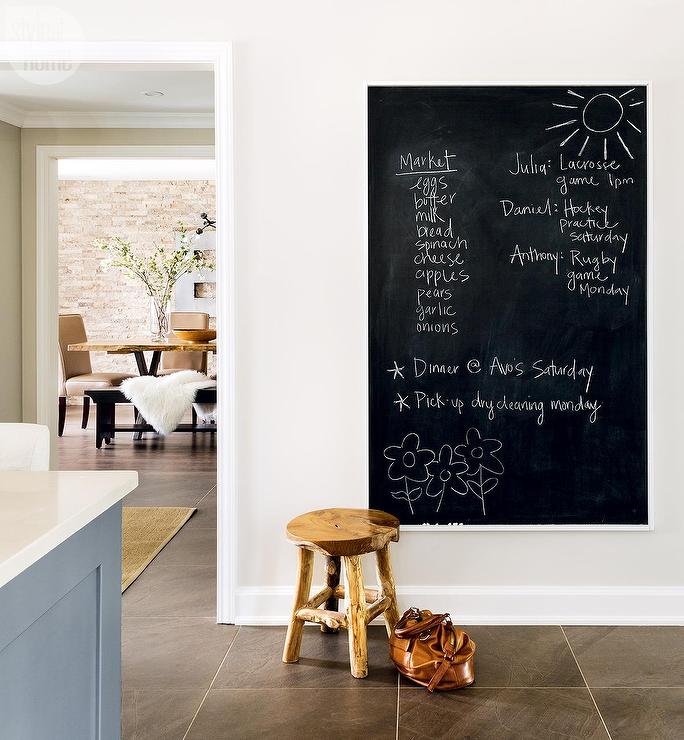 style at
home
Market
eggs
butter
milk
bread
spinach
cheese
apples
pears
garlic
onions
Julia: Lacrosse
game 1pm
Daniel: Hockey
practice
Saturday
Anthony: Rugby
game
Monday
* Dinner @ Avo's Saturday
* Pick-up drycleaning monday